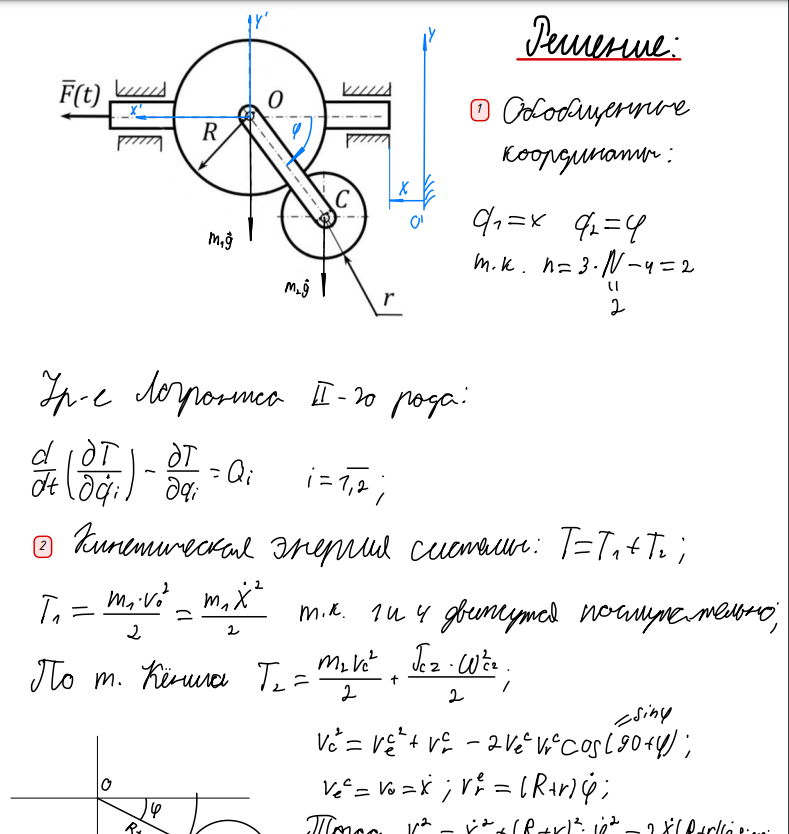 Y'
Y
F̄(t)
X'
O
φ
R
C
X
O'
m₁g⃗
m₂g⃗
r
Решение:
1 Обобщенные
координаты:
q₁=x q₂=φ
т.к. n=3·N-4=2
"
2
Ур-е Лагранжа II-го рода:
d/dt(∂T/∂q̇ᵢ) - ∂T/∂qᵢ = Qᵢ i=1,2;
2 Кинетическая энергия системы: T=T₁+T₂;
T₁ = m₁·v₀²/2 = m₁ẋ²/2 т.к. 1 и 4 движутся поступательно;
По т. Кёнига T₂ = m₂Vc²/2 + Jcz·ω²cz/2;
=sinφ
Vc² = Veᶜ² + Vrᶜ - 2VeᶜVrᶜcos(90+φ);
Veᶜ = V₀ = ẋ; Vrᵉ = (R+r)φ̇;
O
φ